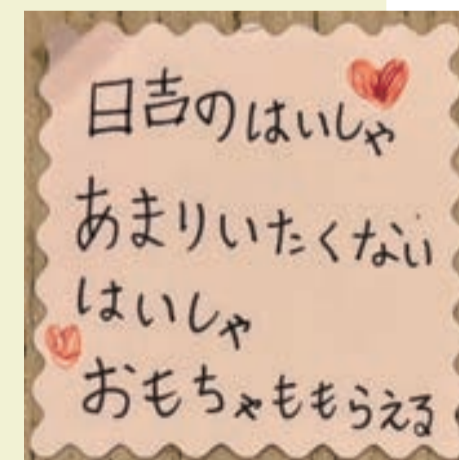 日吉のはいしゃ
あまりいたくない
はいしゃ
おもちゃももらえる